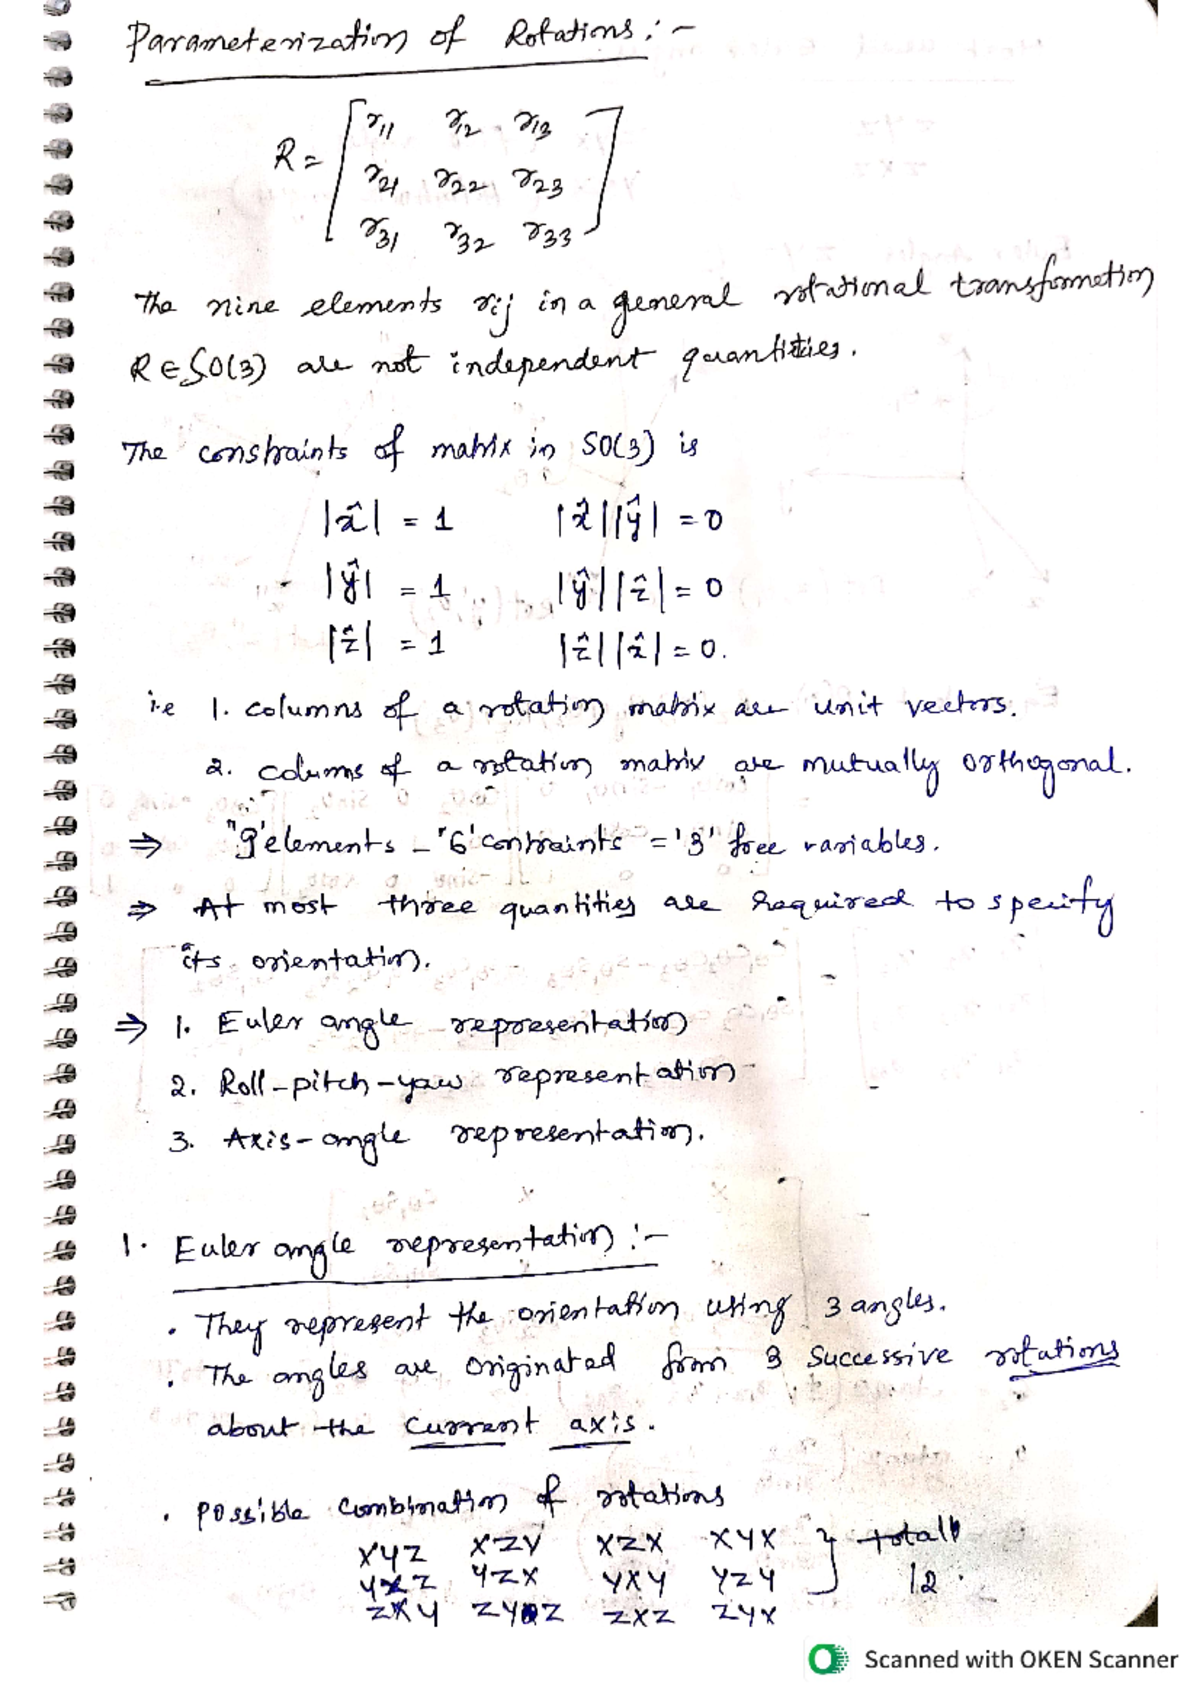 Parameterization of Rotations :-
R = [ r11 r12 r13
r21 r22 r23
r31 r32 r33 ]
The nine elements rij in a general rotational transformation
R ∈ SO(3) are not independent quantities.
The constraints of matrix in SO(3) is
|x̂| = 1 |x̂||ŷ| = 0
|ŷ| = 1 |ŷ||ẑ| = 0
|ẑ| = 1 |ẑ||x̂| = 0.
i.e 1. columns of a rotation matrix are unit vectors.
2. colums of a rotation matrix are mutually orthogonal.
⇒ "9'elements - '6'contraints = '3' free variables.
⇒ At most three quantities are required to specify
its orientation.
⇒ 1. Euler angle representation
2. Roll-pitch-yaw representation
3. Axis-angle representation.
1. Euler angle representation :-
• They represent the orientation using 3 angles.
• The angles are originated from 3 successive rotations
about the current axis.
• possible combination of rotations
XYZ XZY XZX XYX } total
YXZ YZX YXY YZY 12.
ZXY ZYZ ZXZ ZYX
Scanned with OKEN Scanner